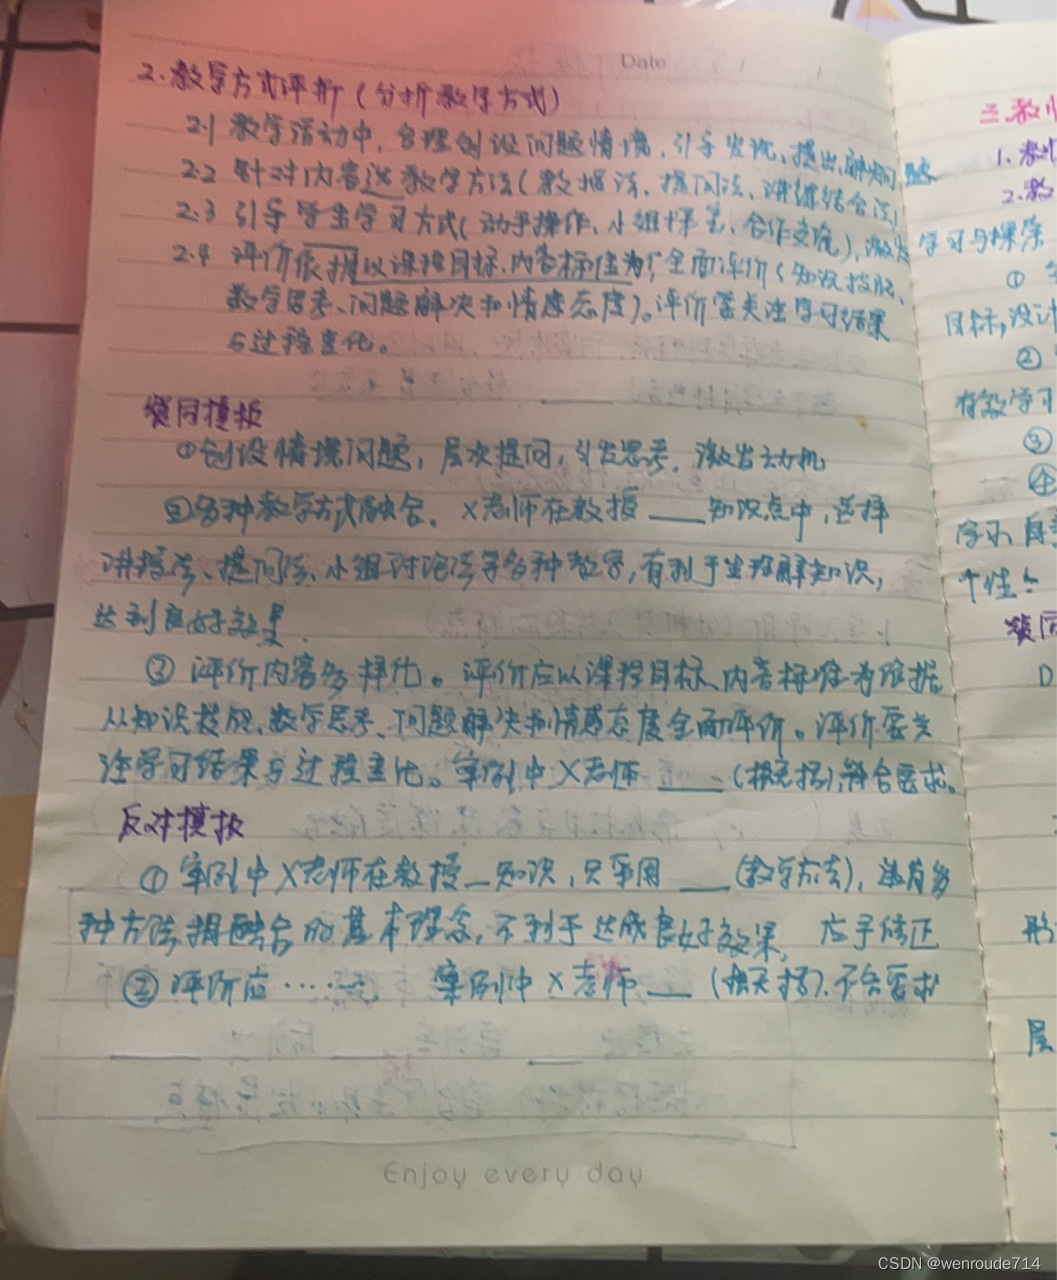 Date
2.教学方式评析(分析教学方式)
2.1 教学活动中,合理创设问题情境,引导发现、提出、解决问题
2.2 针对内容选教学方法(教授法、提问法、讲练结合法)
2.3 引导学生学习方式(动手操作、小组探究、合作交流),激发
2.4 评价依据以课程目标、内容标准为 全面评价(知识技能、
数学思考、问题解决和情感态度)。评价需关注学习结果
与过程变化。
赞同模板
①创设情境问题,层次提问,引发思考,激发动机
②多种教学方式融合。X老师在教授 ___ 知识点中,选择
讲授法、提问法、小组讨论法等多种教学,有利于生理解知识,
达到良好效果.
③ 评价内容多样化。评价应以课程目标、内容标准为依据
从知识技能、数学思考、问题解决和情感态度全面评价。评价要关
注学习结果与过程变化。案例中X老师 ___ (),符合要求。
反对模板
① 案例中X老师在教授_知识,只采用 ___ (教学方法),违背多
种方法相融合的基本理念,不利于达成良好效果, 应予修正
② 评价应…… 案例中X老师 ___ (),不合要求
Enjoy every day
三.教
1.教
2.教
学习与探索
①
目标,设计
②
有效学习
③
④
学习、自
个性。
赞同
D
形
层
CSDN @wenroude714